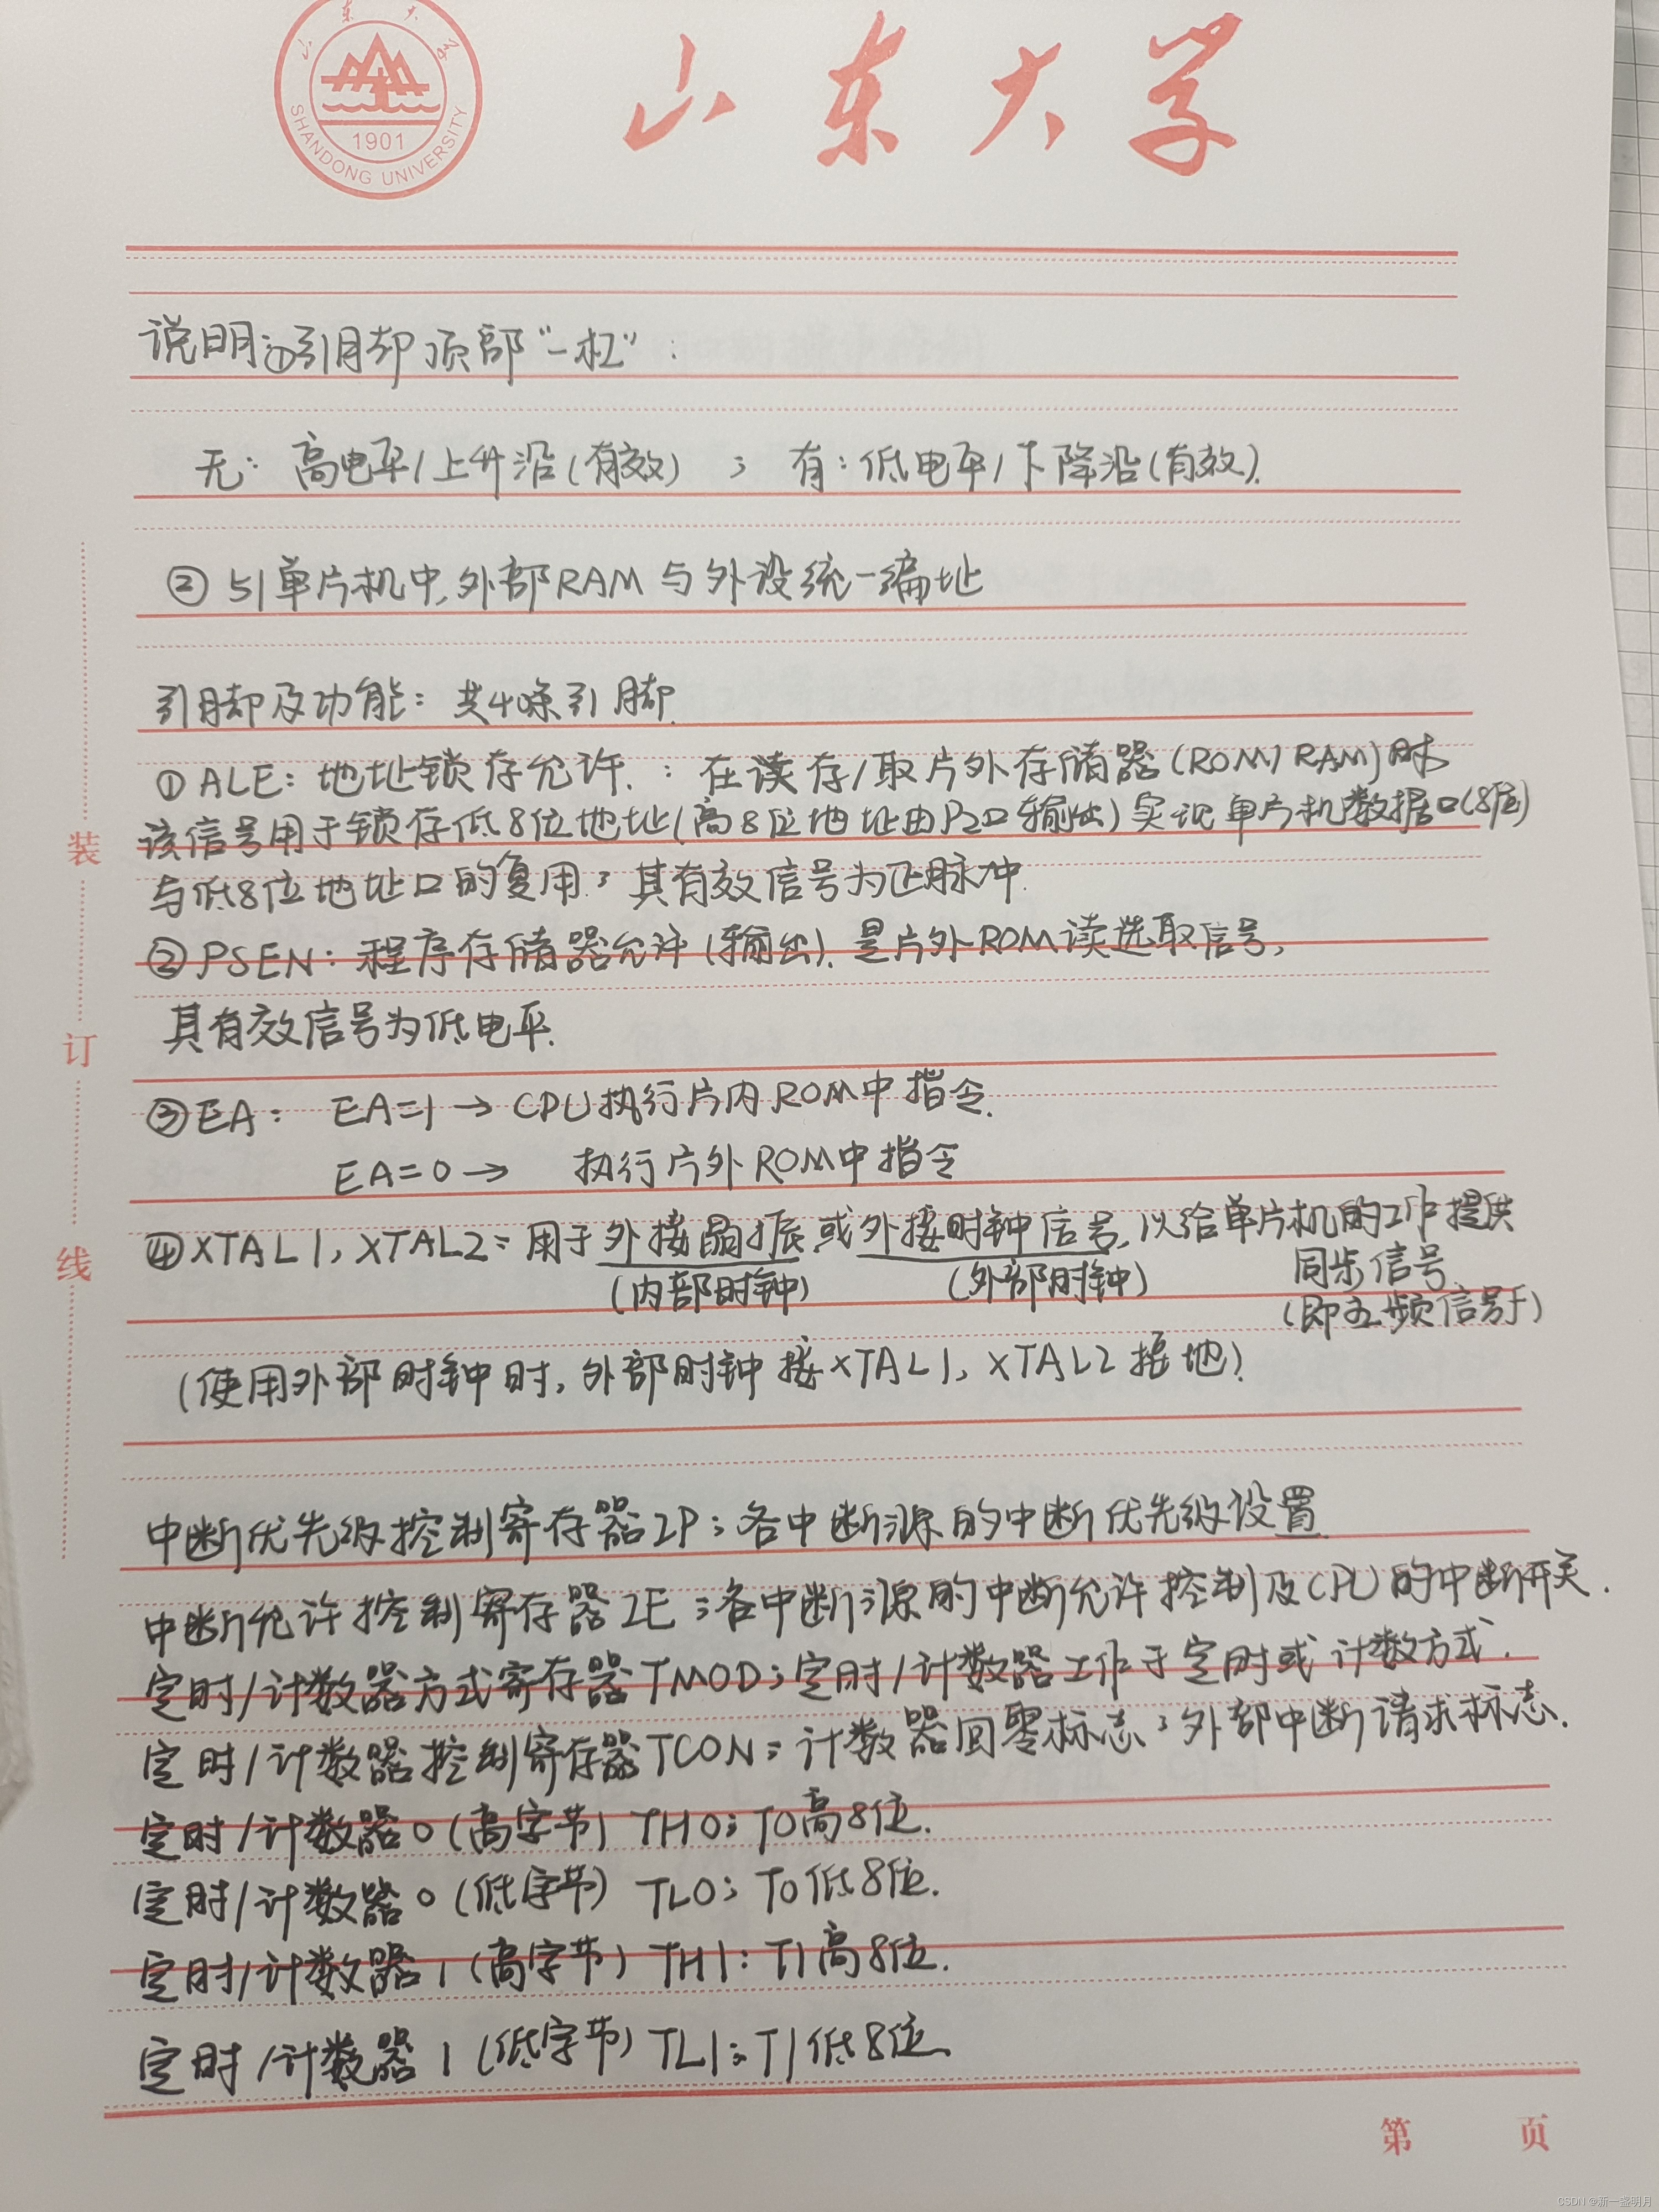 山东大学
SHANDONG UNIVERSITY
1901
山东大学
说明:①引脚顶部“一杠”:
无: 高电平/上升沿(有效) ; 有:低电平/下降沿(有效).
② 51单片机中,外部RAM与外设统一编址
引脚及功能: 共40条引脚.
①ALE: 地址锁存允许. : 在读存/取片外存储器(ROM/RAM)时
该信号用于锁存低8位地址(高8位地址由P2口输出)实现单片机数据口(8位)
与低8位地址口的复用; 其有效信号为正脉冲.
②PSEN: 程序存储器允许(输出). 是片外ROM读选取信号,
其有效信号为低电平.
③EA: EA=1 → CPU执行片内ROM中指令.
EA=0 → 执行片外ROM中指令
④XTAL1, XTAL2: 用于外接晶振或外接时钟信号, 以给单片机的工作提供
同步信号
(内部时钟) (外部时钟)
(即主频信号f)
(使用外部时钟时, 外部时钟接XTAL1, XTAL2接地)
中断优先级控制寄存器IP: 各中断源的中断优先级设置
中断允许控制寄存器IE: 各中断源的中断允许控制及CPU的中断开关.
定时/计数器方式寄存器TMOD: 定时/计数器工作于定时或计数方式.
定时/计数器控制寄存器TCON: 计数器回零标志; 外部中断请求标志.
定时/计数器0(高字节) TH0: T0高8位.
定时/计数器0(低字节) TL0: T0低8位.
定时/计数器1(高字节) TH1: T1高8位.
定时/计数器1(低字节) TL1: T1低8位.
装
订
线
第 页
CSDN @新一盏明月